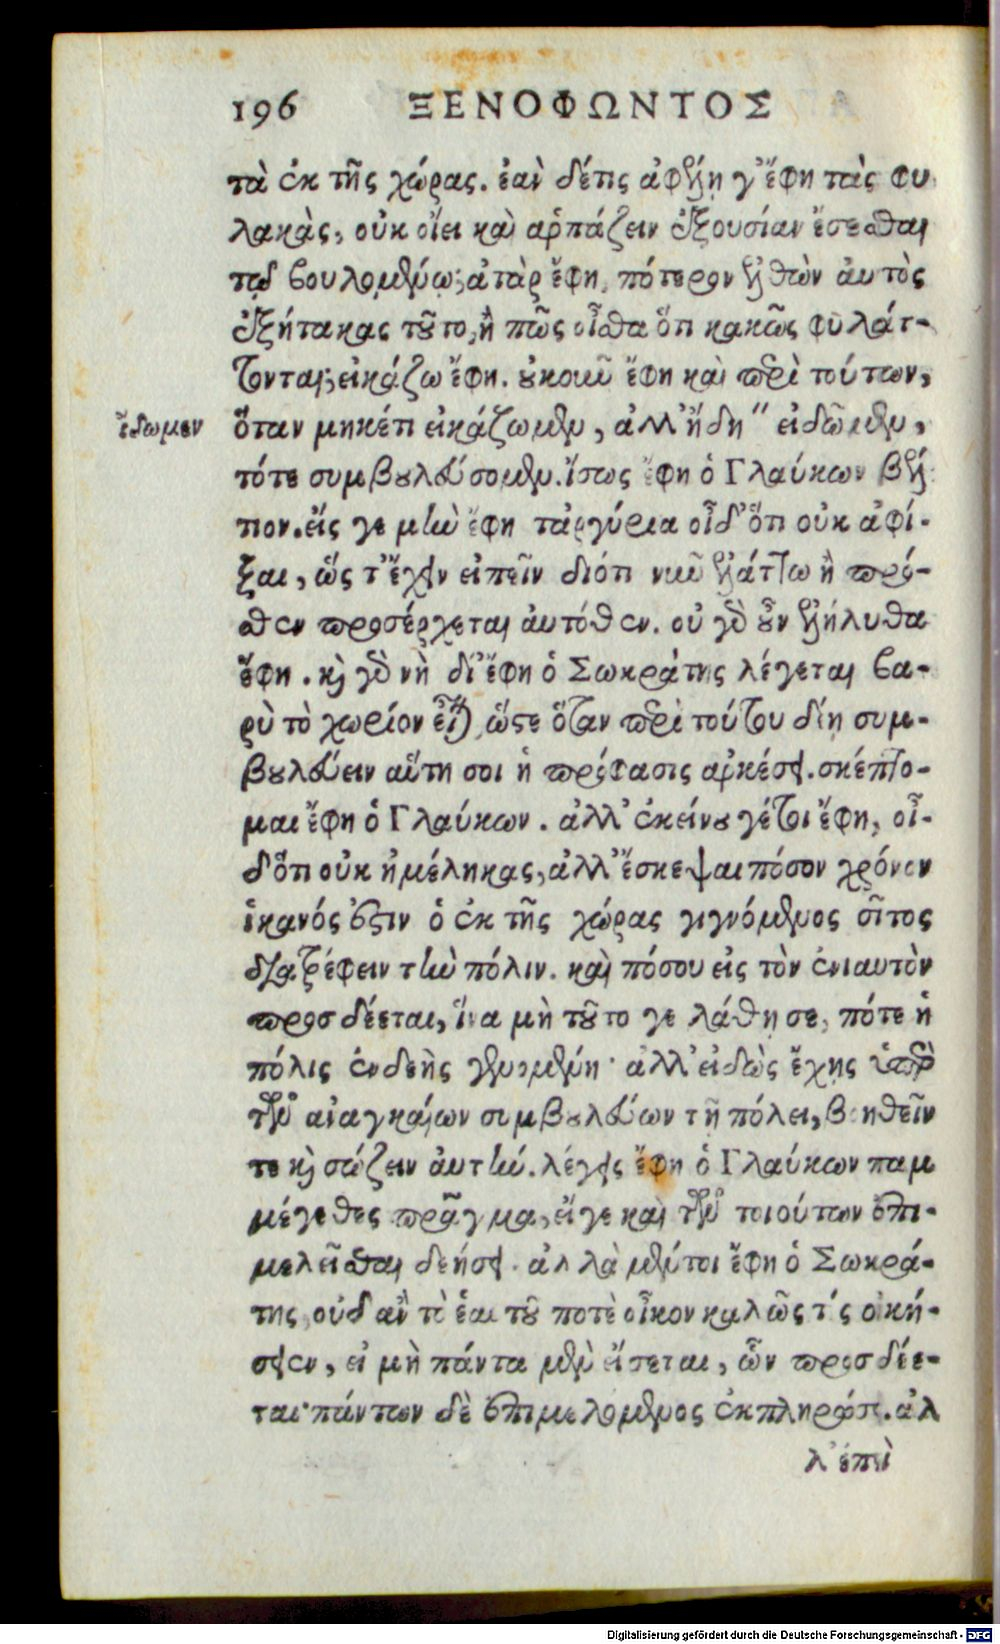 196 ΞΕΝΟΦΩΝΤΟΣ
τὰ ἐκ τῆς χώρας. ἐὰν δέτις ἀφέλῃ γ' ἔφη τὰς φυ
λακὰς, οὐκ οἴει καὶ ἁρπάζειν ἐξουσίαν ἔσεσθαι
τῷ βουλομένῳ; ἀτὰρ ἔφη, πότερον ἐλθὼν αὐτὸς
ἐξήτακας τοῦτο, ἢ πῶς οἶσθα ὅτι κακῶς φυλάτ-
τονται; εἰκάζω ἔφη. οὐκοῦν ἔφη καὶ περὶ τούτων,
ἴδωμεν ὅταν μηκέτι εἰκάζωμεν, ἀλλ' ἤδη " εἰδῶμεν,
τότε συμβουλεύσομεν. ἴσως ἔφη ὁ Γλαύκων βέλ
τιον. εἴς γε μὴν ἔφη τἀργύρια οἶδ' ὅτι οὐκ ἀφί-
ξαι, ὥς τ' ἔχειν εἰπεῖν διότι νῦν ἐλάττω ἢ πρό-
σθεν προσέρχεται αὐτόθεν. οὐ γὰρ οὖν ἐλήλυθα
ἔφη. καὶ γὰρ νὴ δί' ἔφη ὁ Σωκράτης λέγεται βα-
ρὺ τὸ χωρίον εἶναι, ὥστε ὅταν περὶ τούτου δέῃ συμ-
βουλεύειν αὕτη σοι ἡ πρόφασις ἀρκέσει. σκέπτο-
μαι ἔφη ὁ Γλαύκων. ἀλλ' ἐκείνου γέτοι ἔφη, οἶ-
δ' ὅτι οὐκ ἠμέληκας, ἀλλ' ἔσκεψαι πόσον χρόνον
ἱκανός ἐστιν ὁ ἐκ τῆς χώρας γιγνόμενος σῖτος
διατρέφειν τὴν πόλιν. καὶ πόσου εἰς τὸν ἐνιαυτὸν
προσδέεται, ἵνα μὴ τοῦτο γε λάθῃ σε, πότε ἡ
πόλις ἐνδεὴς γενομένη· ἀλλ' εἰδὼς ἔχῃς ὑπὲρ
τῶν ἀναγκαίων συμβουλεύων τῇ πόλει, βοηθεῖν
τε καὶ σώζειν αὐτήν. λέγεις ἔφη ὁ Γλαύκων παμ
μέγεθες πρᾶγμα, εἴγε καὶ τῶν τοιούτων ἐπι-
μελεῖσθαι δεήσει. ἀλλὰ μέντοι ἔφη ὁ Σωκρά-
της, οὐδ' ἂν τὸ ἑαυτοῦ ποτὲ οἶκον καλῶς τίς οἰκή-
σειεν, εἰ μὴ πάντα μὲν εἴσεται, ὧν προσδέε-
ται· πάντων δὲ ἐπιμελόμενος ἐκπληρώσει. ἀλ
λ' ἐπεὶ
Digitalisierung gefördert durch die Deutsche Forschungsgemeinschaft - DFG